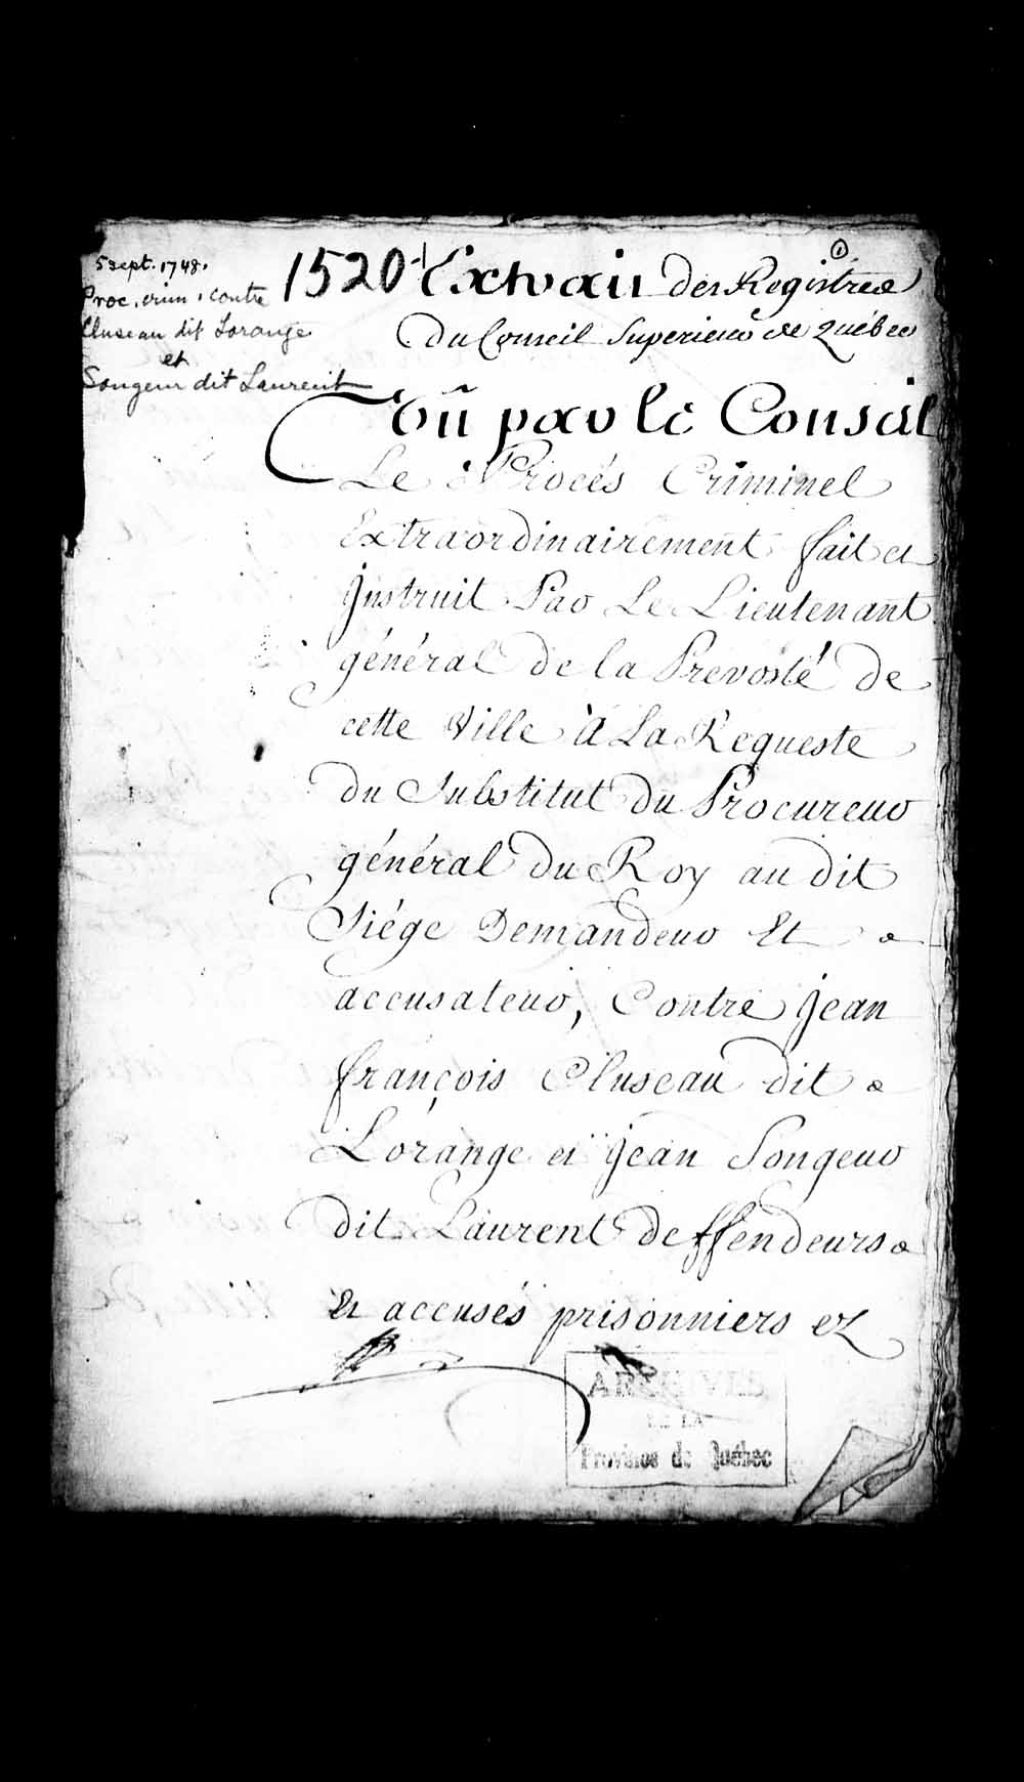 5 Sept. 1748.
Proc. crim. contre
Cluseau dit Lorange
et
Songeur dit Laurent
1520
1
Extrait des Registres
Du Conseil Superieur de Québec
Vû par le Conseil
Le Procés Criminel
Extraordinairement fait et
Instruit Par Le Lieutenant
général de la Prevosté de
cette Ville à La Requeste
du Substitut du Procureur
général du Roy au dit
Siége Demandeur Et
accusateur, Contre Jean
françois Cluseau dit
Lorange et Jean Songeur
dit Laurent deffendeurs
Et accusés prisonniers ez
ARCHIVES
DE LA
Province de Québec